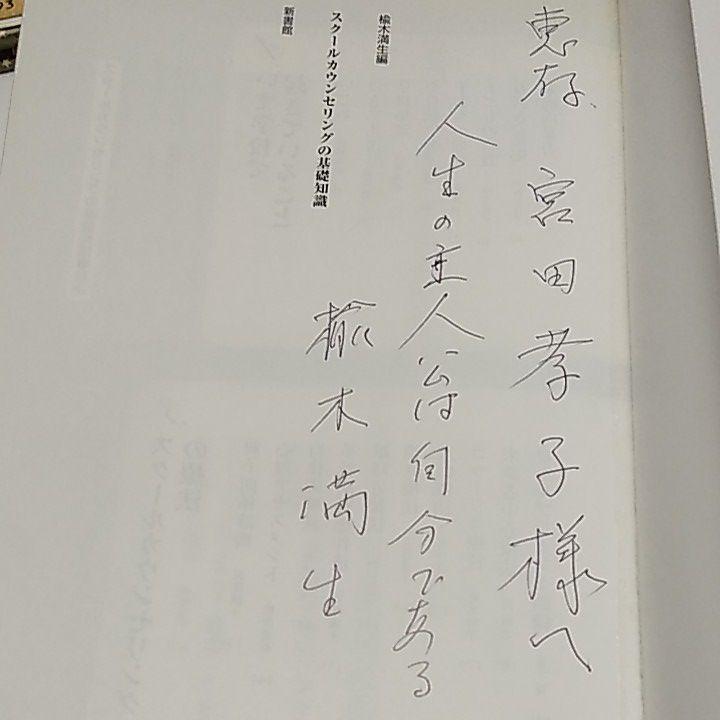 恵存、宮田孝子様へ
人生の主人公は自分である
楡木満生
楡木満生編
スクールカウンセリングの基礎知識
新書館